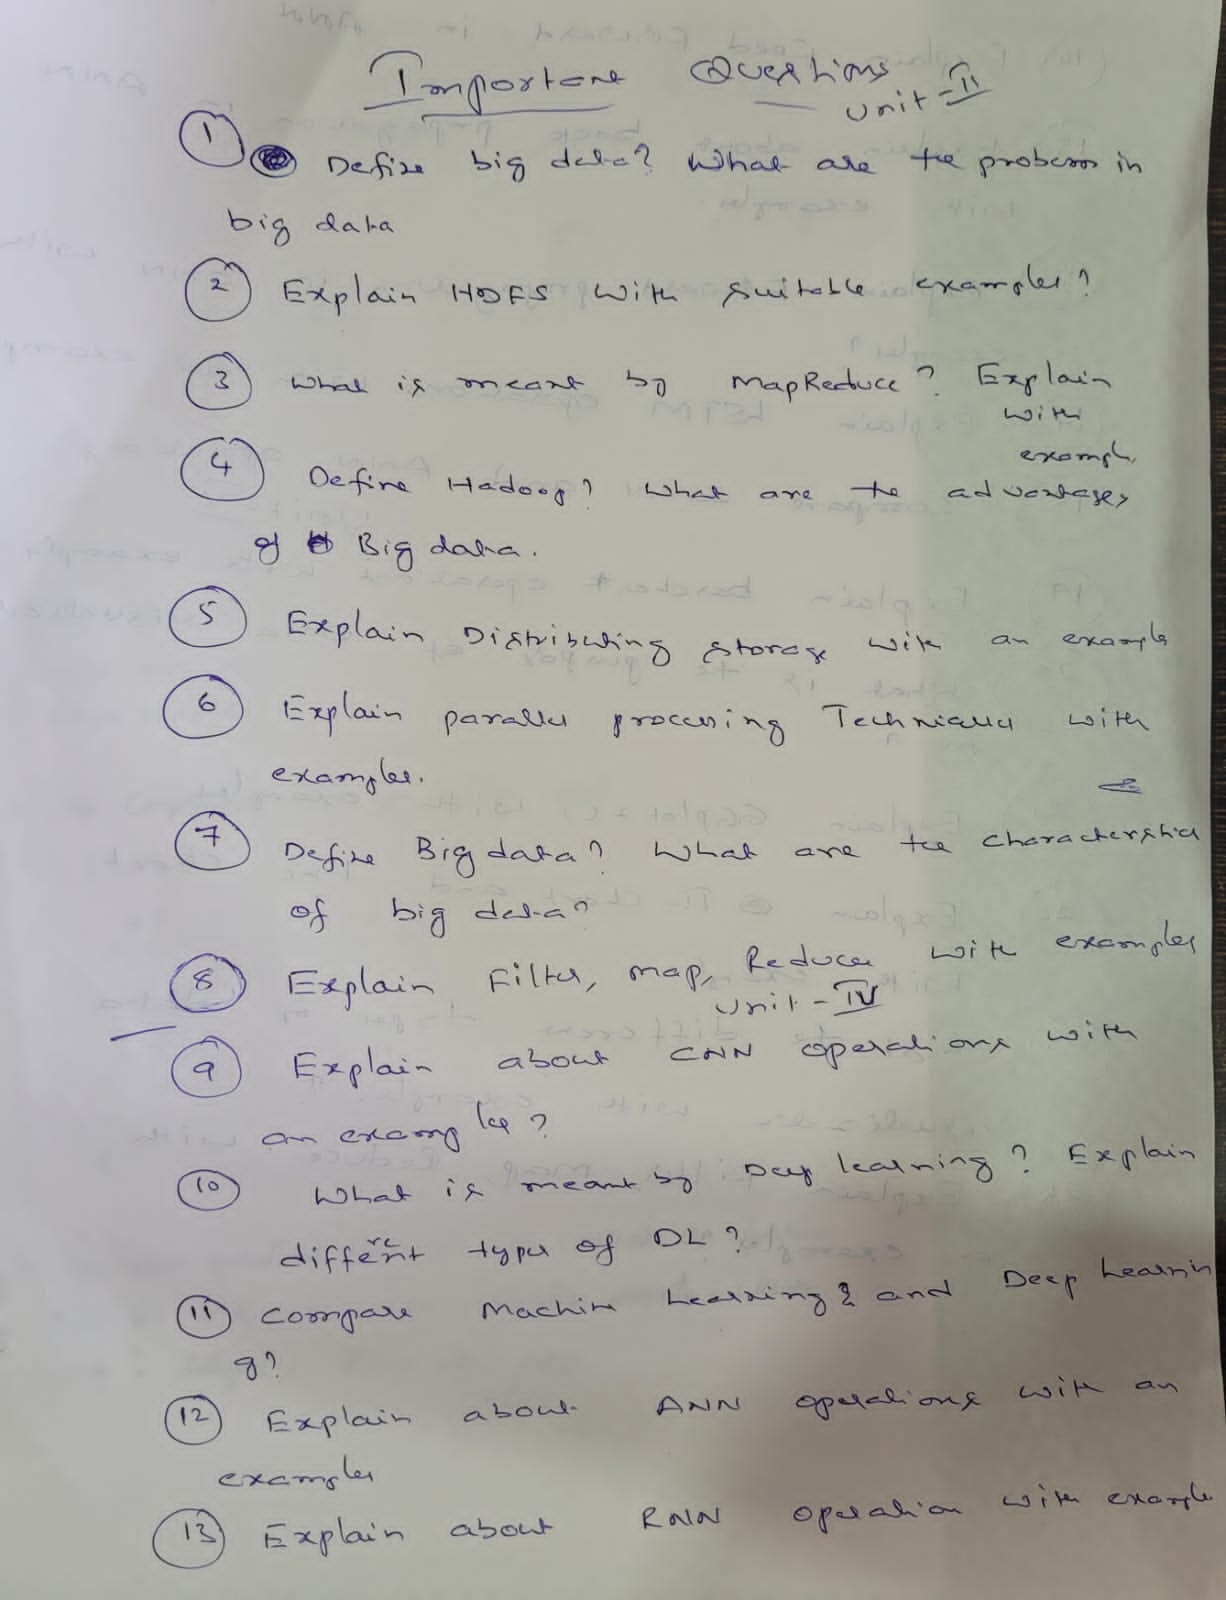 Important Questions
Unit-II
1 Define big data? What are the problems in
big data
2 Explain HDFS with suitable examples?
3 What is meant by MapReduce? Explain
with
example
4 Define Hadoop? What are the advantages
of Big data.
5 Explain Distributing storage with an example
6 Explain parallel processing Techniques with
examples.
7 Define Big data? What are the characteristics
of big data?
8 Explain Filter, map, Reduce with examples
Unit-IV
9 Explain about CNN operations with
an example?
10 What is meant by Deep learning? Explain
different types of DL?
11 Compare Machine Learning and Deep Learnin
g?
12 Explain about ANN operations with an
examples
13 Explain about RNN operation with example